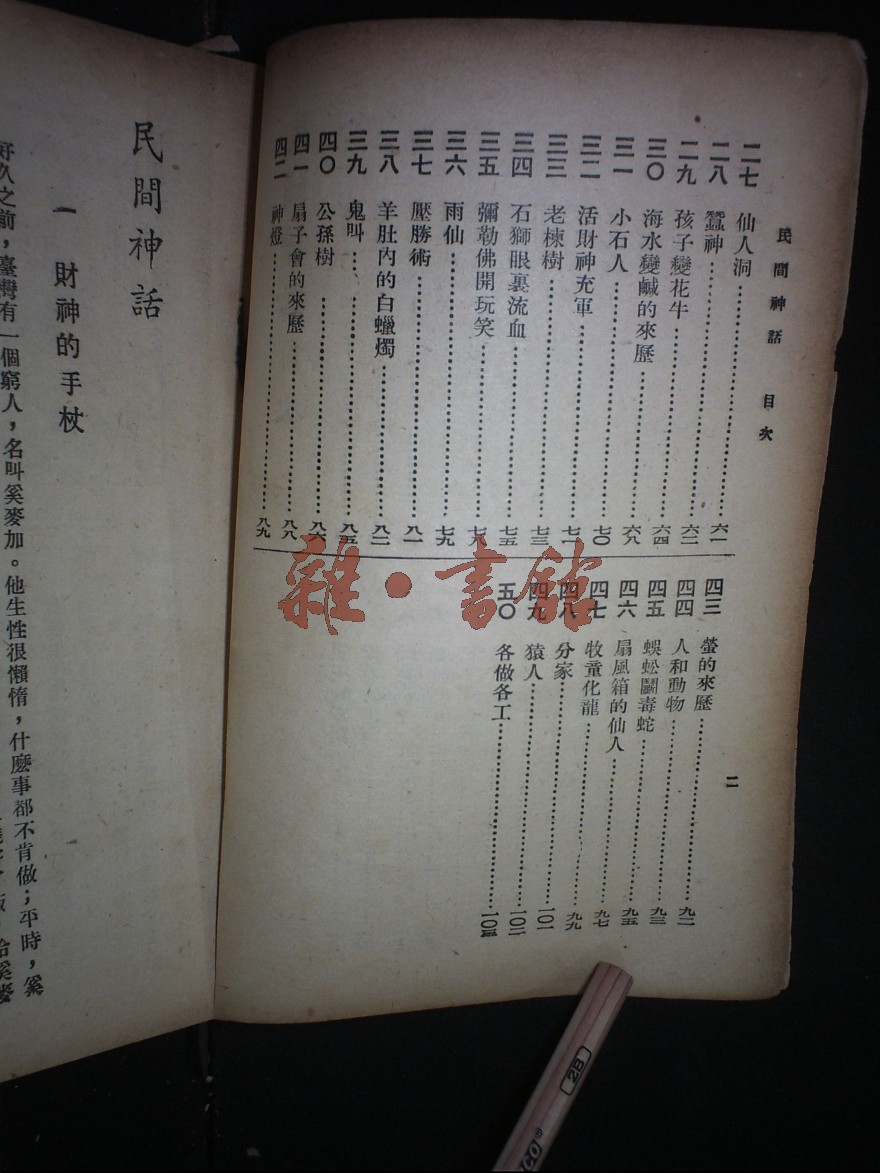 民間神話 目次
二七 仙人洞 六一
二八 蠶神 六二
二九 孩子變花牛 六三
三〇 海水變鹹的來歷 六四
三一 小石人 六八
三二 活財神充軍 七〇
三三 老楝樹 七一
三四 石獅眼裏流血 七三
三五 彌勒佛開玩笑 七五
三六 雨仙 七九
三七 壓勝術 八一
三八 羊肚內的白蠟燭 八二
三九 鬼叫 八五
四〇 公孫樹 八六
四一 扇子會的來歷 八八
四二 神燈 八九
四三 螢的來歷 九二
四四 人和動物 九三
四五 蜈蚣鬭毒蛇 九五
四六 扇風箱的仙人 九七
四七 牧童化龍 九九
四八 分家 一〇一
四九 猿人 一〇二
五〇 各做各工 一〇三
二
民間神話
一 財神的手杖
好久之前，臺灣有一個窮人，名叫奚麥加。他生性很懶惰，什麼事都不肯做；平時，奚
雜·書館
2B